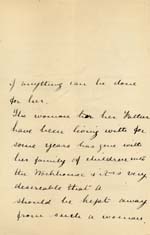 if anything can be done
for her.
The woman her Father
have been living with for
some years has gone with
her family of children into
the Workhouse & it is very
desireable that A
should be kept away
from such a woman.